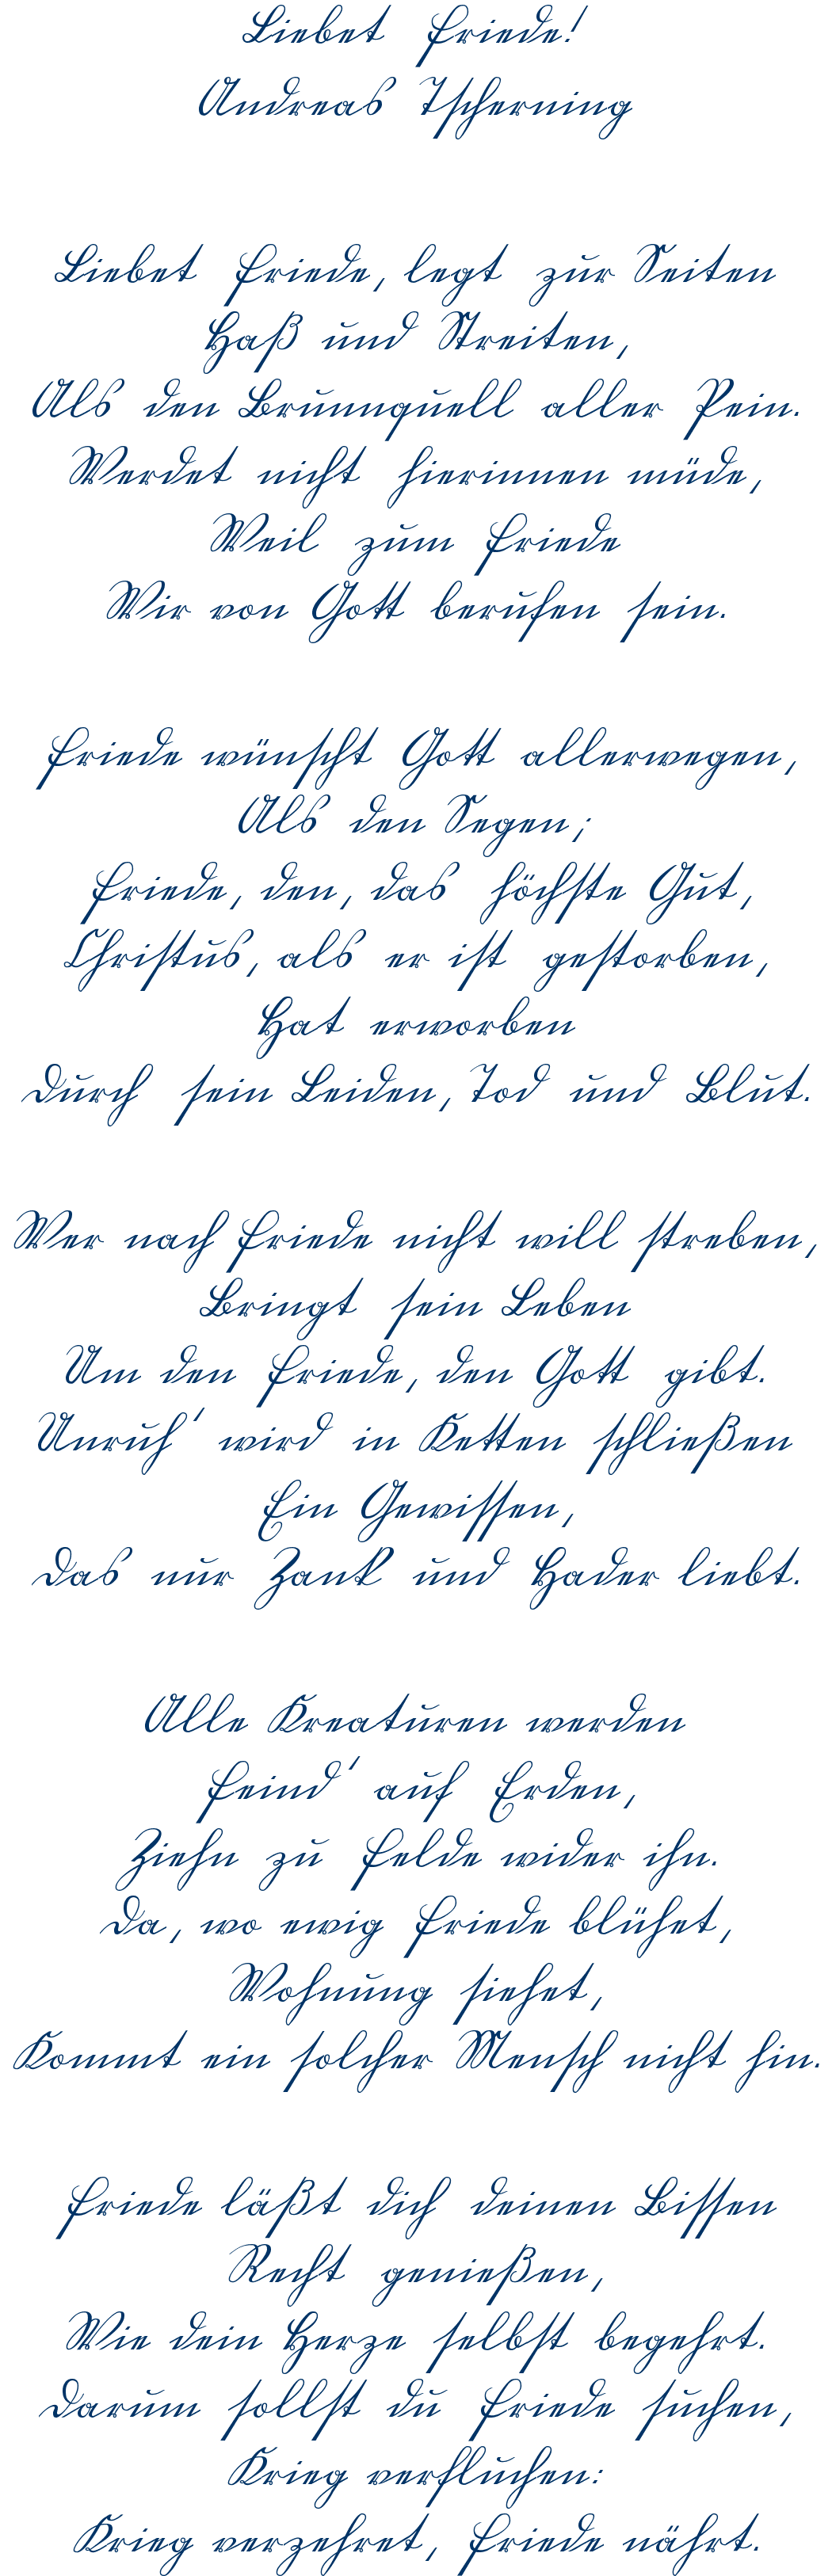 Liebet Friede!
Andreas Tscherning
Liebet Friede, legt zur Seiten
Haß und Streiten,
Als den Brunnquell aller Pein.
Werdet nicht hierinnen müde,
Weil zum Friede
Wir von Gott berufen sein.
Friede wünscht Gott allerwegen,
Als den Segen;
Friede, den, das höchste Gut,
Christus, als er ist gestorben,
Hat erworben
Durch sein Leiden, Tod und Blut.
Wer nach Friede nicht will streben,
Bringt sein Leben
Um den Friede, den Gott gibt.
Unruh' wird in Ketten schließen
Ein Gewissen,
Das nur Zank und Hader liebt.
Alle Kreaturen werden
Feind' auf Erden,
Ziehn zu Felde wider ihn.
Da, wo ewig Friede blühet,
Wohnung siehet,
Kommt ein solcher Mensch nicht hin.
Friede läßt dich deinen Bissen
Recht genießen,
Wie dein Herze selbst begehrt.
Darum sollst du Friede suchen,
Krieg verfluchen:
Krieg verzehret, Friede nährt.